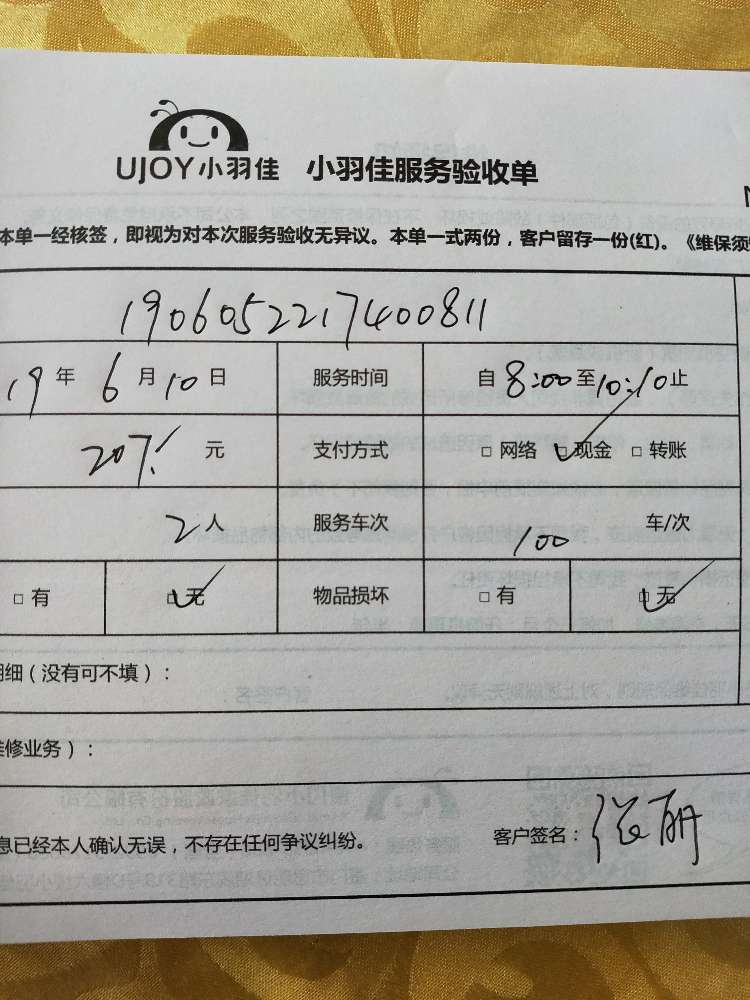 UJOY小羽佳 小羽佳服务验收单
本单一经核签，即视为对本次服务验收无异议。本单一式两份，客户留存一份(红)。《维保须
1906052217400811
19年6月10日 服务时间 自8:00至10:10止
207元 支付方式 □网络 □现金 □转账
2人 服务车次 100 车/次
□有 □无 物品损坏 □有 □无
明细（没有可不填）：
维修业务）：
息已经本人确认无误，不存在任何争议纠纷。 客户签名：张丽